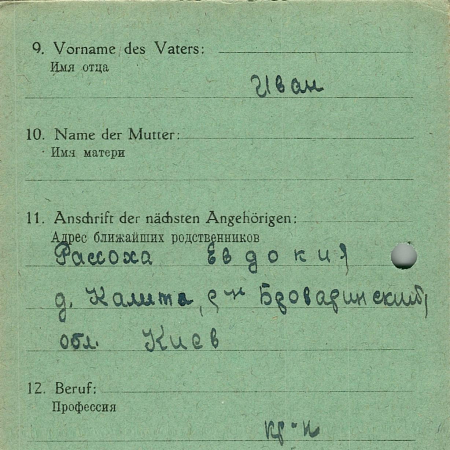 9. Vorname des Vaters:
Имя отца
Иван
10. Name der Mutter:
Имя матери
11. Anschrift der nächsten Angehörigen:
Адрес ближайших родственников
Рассоха Евдокия
д. Калита, р-н Броваринский,
обл. Киев
12. Beruf:
Профессия
кр-н